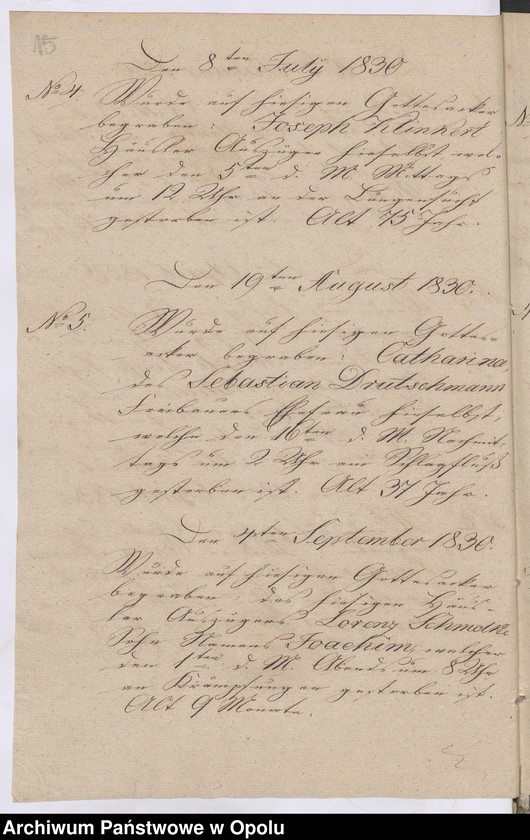 15
Den 8ten July 1830
No 4. Wurde auf hiesigen Gottesacker
begraben: Joseph Klinkert
Häusler Auszüger hieselbst wel-
cher den 5ten d. M. Mittags
um 12 Uhr an der Lungensucht
gestorben ist. Alt 75 Jahr.
Den 19ten August 1830.
No 5. Wurde auf hiesigen Gottes-
acker begraben: Catharina,
des Sebastian Drutschmann
Freibauers Ehefrau hieselbst,
welche den 16ten d. M. Nachmit-
tags um 2 Uhr am Schlagfluß
gestorben ist. Alt 37 Jahr.
Den 4ten September 1830.
Wurde auf hiesigen Gottesacker
begraben: des hiesigen Häus-
ler Auszügers Lorenz Schmolke
Sohn Namens Joachim, welcher
den 1ten d. M. Abends um 8 Uhr
an Krämpfungen gestorben ist.
Alt 9 Monate.
Archiwum Państwowe w Opolu